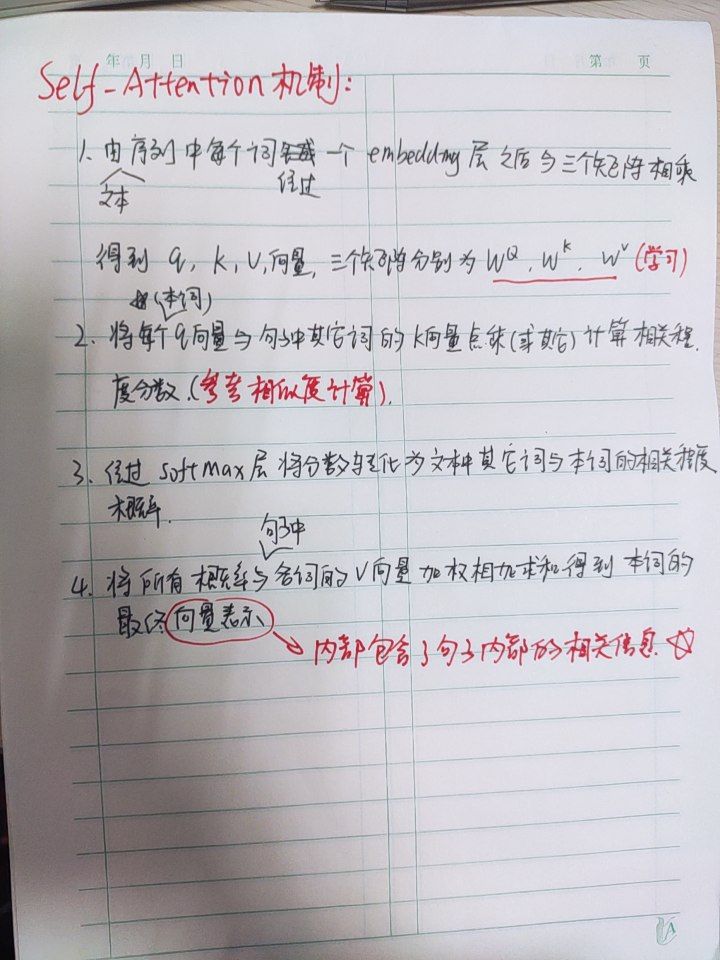 年 月 日
第 页
Self-Attention 机制:
1. 由序列中每个词 一个 embedding 层之后与三个矩阵相乘
文本
经过
得到 q, k, v, 向量, 三个矩阵分别为 W^Q, W^K, W^V (学习)
(本词)
2. 将每个q向量与句中其它词的k向量点乘(或其它)计算相关程
度分数.(参考相似度计算).
3. 经过 softmax 层将分数转化为文本中其它词与本词的相关程度
概率.
句子中
4. 将所有概率与各词的V向量加权相加求和得到本词的
最终向量表示
内部包含了句子内部的相关信息 ☆